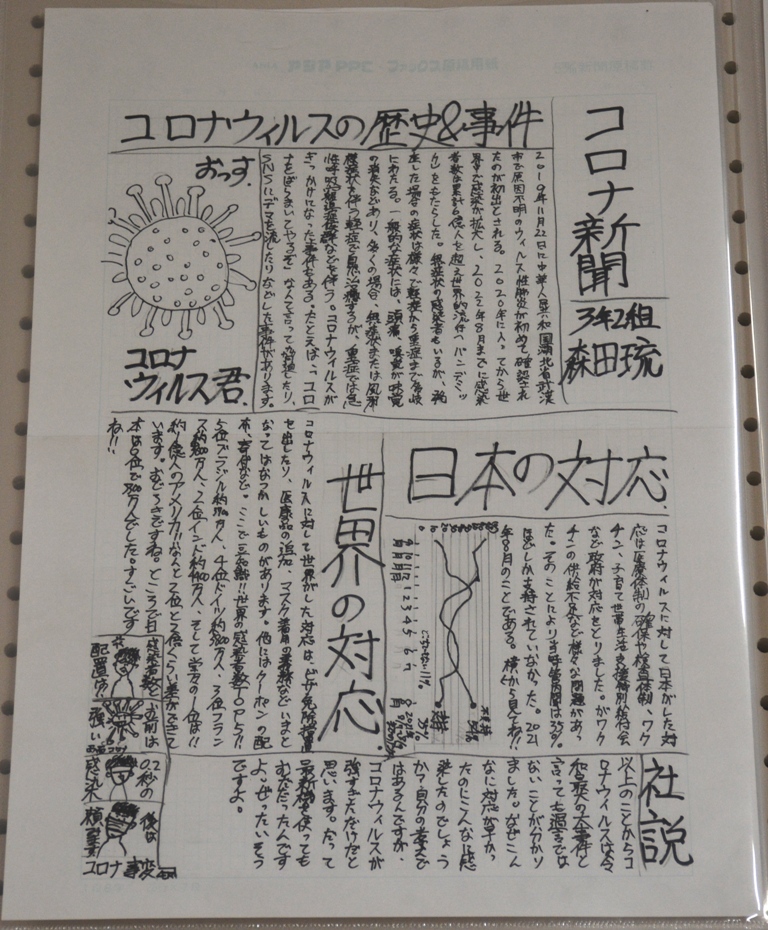 コロナ新聞
3年2組
森田琉
コロナウィルスの歴史&事件
2019年11月22日に中華人民共和国湖北省武漢
市で原因不明のウィルス性肺炎が初めて確認され
たのが初出とされる。2020年に入ってから世
界中で感染が拡大し、2022年8月までに感染
者数は累計6億人を超え世界的流行(パンデミッ
ク)をもたらした。無症状の感染者もいるが、発
症した場合の症状は様々で軽症から重症まで多岐
にわたる。一般的な症状には、頭痛、嗅覚が味覚
の消失などあり、多くの場合、無症状または風邪
様症状を伴う軽症で自然治癒するが、重症では急
性呼吸窮迫症候群などを伴う。コロナウィルスが
きっかけになった事件もある。たとえば、「コロ
ナをばらまいてやるぞ」なんて言って
SNSにデマを流したりなどした事件があります。
おっす。
コロナ
ウィルス君。
日本の対応。
コロナウィルスに対して日本がした対
応は医療体制の確保や検査体制、ワク
チン、子育て世帯生活支援特別給付金
など政府が対応をとりました。がワク
チンの供給不足など様々な問題があっ
た。そのことにより
ほどしか支持されていなかった。2021
年8月のことである。横から見てね!!
世界の対応。
コロナウィルスに対して世界がした対応は、ビザ免除措置
を出したり、医療品の追加、マスク着用の義務などいまと
なってはなつかしいものがあります。他にはクーポンの配
布、寄付など。ここで豆知識!!世界の感染者数TOP5!!
5位ブラジル約
4位ドイツ約
3位フラン
ス約
2位インド約
そして堂々の1位は!!
約1億人のアメリカ!!なんと2位と
くらい差ができて
います。むごうさですね。ところで日
本は
でした。すごいです
ね!!
社説
以上のことからコ
ロナウィルスは令
和最大の大事件と
言っても過言では
ないことが分かり
ました。なぜこん
なに対応が早か
ったのにこんなに感
染したのでしょう
か?自分の考えで
はあるんですが、
コロナウィルスが
強すぎただけだと
思います。だって
最新機を使っても
むだだったんです
よ。ぜったいそう
ですよ。
お前は
強い
0.2秒の
感染
後は
コロナ